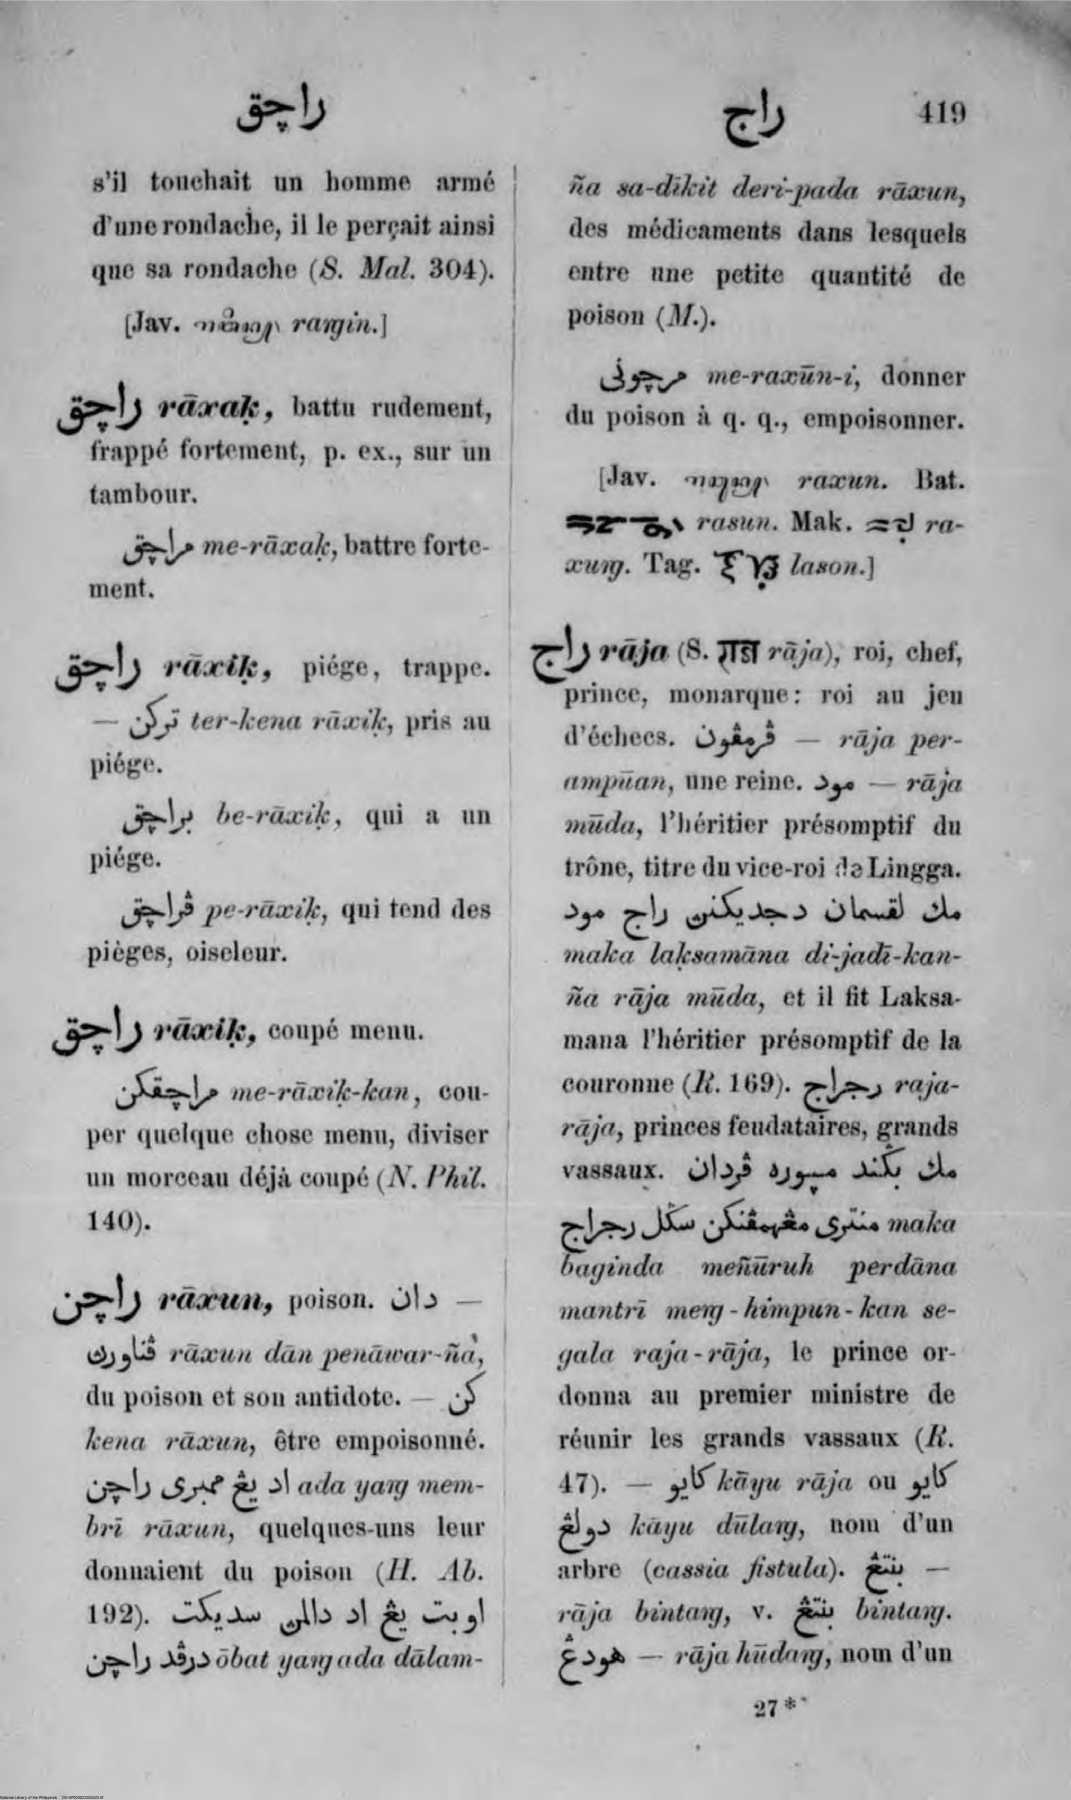 راچق
راج 419
s'il touchait un homme armé
d'une rondache, il le perçait ainsi
que sa rondache (S. Mal. 304).
[Jav. raŋgin.]
راچق rāxaḳ, battu rudement,
frappé fortement, p. ex., sur un
tambour.
مراچق me-rāxaḳ, battre forte-
ment.
راچق rāxiḳ, piége, trappe.
— تركن ter-kena rāxiḳ, pris au
piége.
براچق be-rāxiḳ, qui a un
piége.
ڤراچق pe-rāxiḳ, qui tend des
pièges, oiseleur.
راچق rāxiḳ, coupé menu.
مراچقكن me-rāxiḳ-kan, cou-
per quelque chose menu, diviser
un morceau déjà coupé (N. Phil.
140).
راچن rāxun, poison. دان —
ڤناورڽ rāxun dān penāwar-ña,
du poison et son antidote. — كن
kena rāxun, être empoisonné.
اد يڠ ممبرى راچن ada yaŋ mem-
brī rāxun, quelques-uns leur
donnaient du poison (H. Ab.
192). اوبت يڠ اد دالمڽ سديكت
درڤد راچن ōbat yaŋ ada dālam-
ña sa-dīkit deri-pada rāxun,
des médicaments dans lesquels
entre une petite quantité de
poison (M.).
مرچونى me-raxūn-i, donner
du poison à q. q., empoisonner.
[Jav. raxun. Bat.
rasun. Mak. ra-
xuŋ. Tag. lason.]
راج rāja (S. राजा rāja), roi, chef,
prince, monarque: roi au jeu
d'échecs. ڤرمڤون — rāja per-
ampūan, une reine. مود — rāja
mūda, l'héritier présomptif du
trône, titre du vice-roi de Lingga.
مك لقسمان دجديكنڽ راج مود
maka laḳsamāna di-jadī-kan-
ña rāja mūda, et il fit Laksa-
mana l'héritier présomptif de la
couronne (R. 169). رجراج raja-
rāja, princes feudataires, grands
vassaux. مك بڬند مڽوره ڤردان
منترى مڠهمڤنكن سڬل رجراج maka
baginda meñūruh perdāna
mantrī meŋ-himpun-kan se-
gala raja-rāja, le prince or-
donna au premier ministre de
réunir les grands vassaux (R.
47). — كايو kāyu rāja ou كايو
دولڠ kāyu dūlaŋ, nom d'un
arbre (cassia fistula). بنتڠ —
rāja bintaŋ, v. بنتڠ bintaŋ.
هودڠ — rāja hūdaŋ, nom d'un
27*